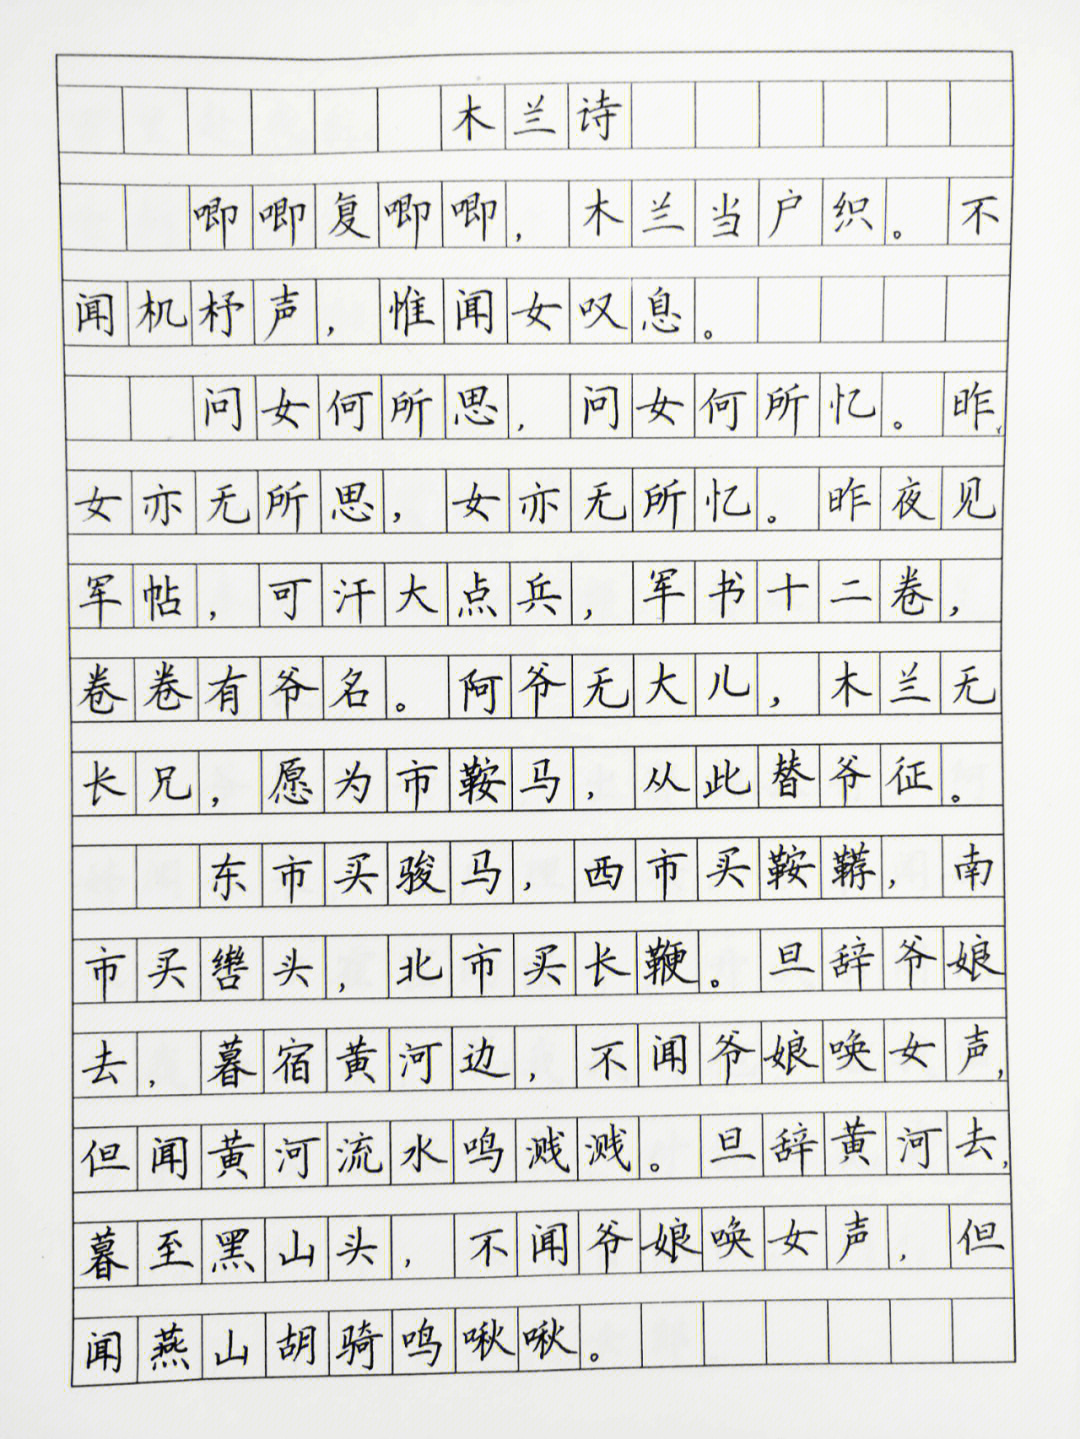 木兰诗
唧唧复唧唧，木兰当户织。不
闻机杼声，惟闻女叹息。
问女何所思，问女何所忆。昨
女亦无所思，女亦无所忆。昨夜见
军帖，可汗大点兵，军书十二卷，
卷卷有爷名。阿爷无大儿，木兰无
长兄，愿为市鞍马，从此替爷征。
东市买骏马，西市买鞍鞯，南
市买辔头，北市买长鞭。旦辞爷娘
去，暮宿黄河边，不闻爷娘唤女声，
但闻黄河流水鸣溅溅。旦辞黄河去，
暮至黑山头，不闻爷娘唤女声，但
闻燕山胡骑鸣啾啾。